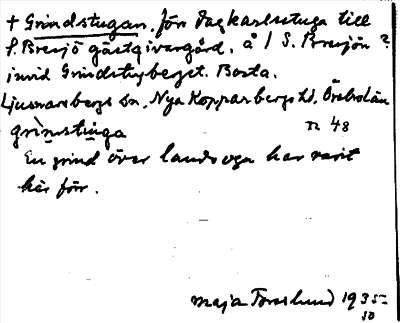 + Grindstugan. förr dagkarlsstuga till
S. Bredsjö gästgivargård. å / S. Bredsjön ?
invid Grindstugberget. Borta.
Ljusnarsbergs sn. Nya Kopparbergs hd. Örebro län
grinstuga n 48
En grind över landsväga har varit
här förr.
Maja Forslund 1935-